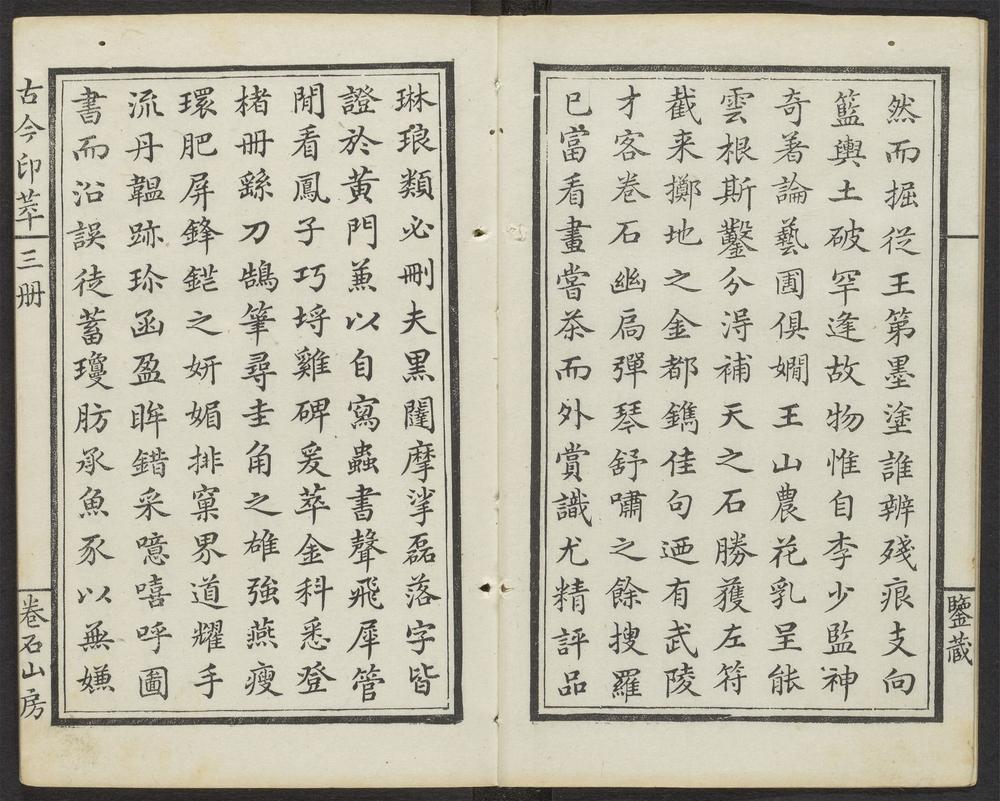 然而掘従王第墨塗誰辨殘痕支向
籃輿土破罕逢故物惟自李少監神
奇著論藝圃俱嫺王山農花乳呈能
雲根斯鑿分淂補天之石勝獲左符
截来擲地之金都鐫佳句迺有武陵
才客卷石幽扄彈琴舒嘯之餘搜羅
已富看畫嘗茶而外賞識尤精評品
鑒藏
琳琅類必刪夫黒闥摩挲磊落字皆
證於黄門兼以自寫蟲書聲飛犀管
閒看鳳子巧埒雞碑爰萃金科悉登
楮冊繇刀鵠筆尋圭角之雄強燕瘦
環肥屏鋒鋩之妍媚排窠界道耀手
流丹韞跡珎函盈眸錯采噫嘻呼圗
書而沿誤徒蓄瓊肪承魚豕以無嫌
古今印萃
三册
卷石山房